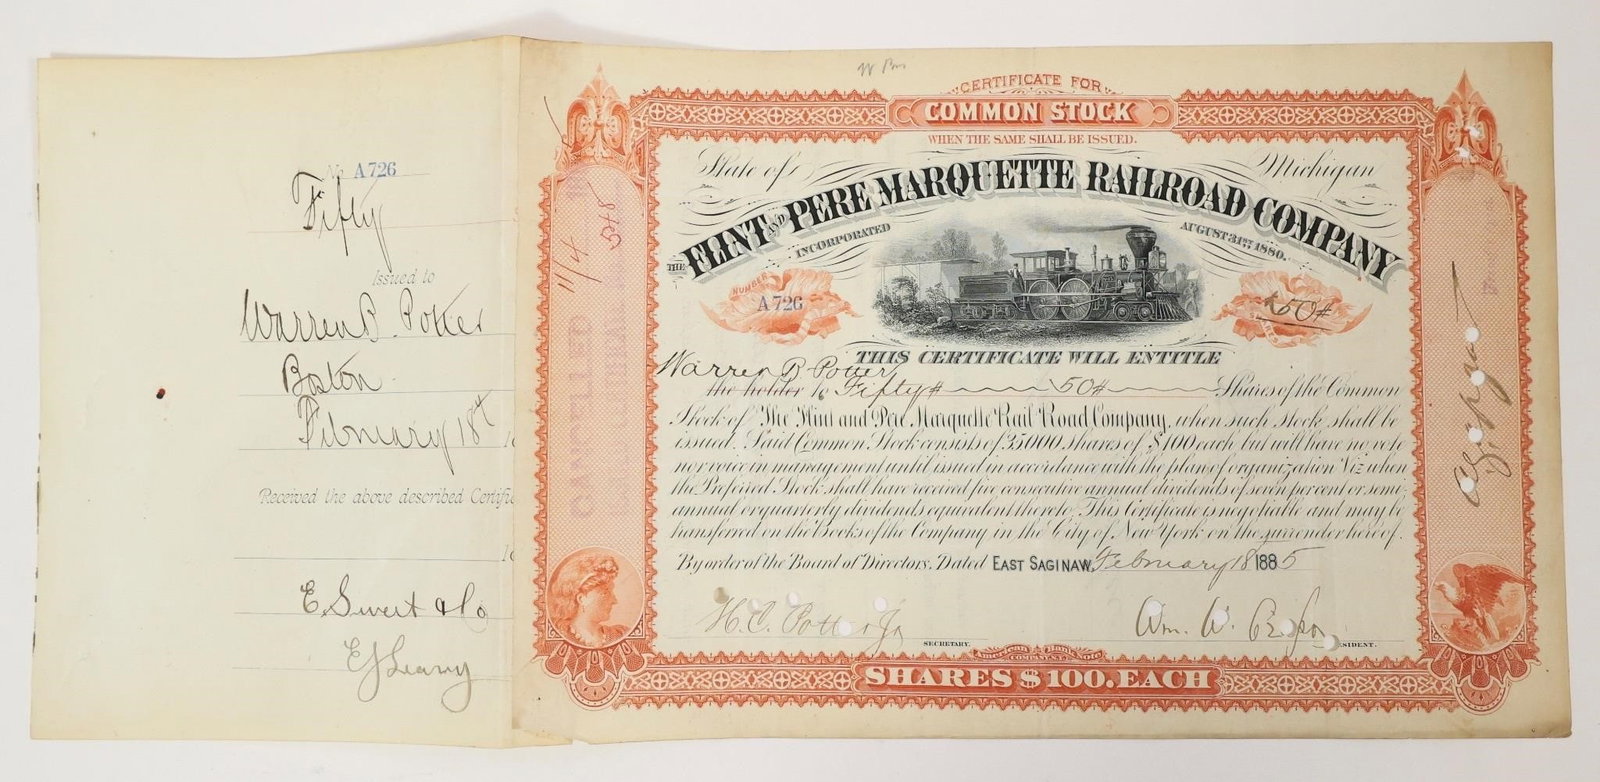 No A726
Fifty
Issued to
Warren B. Potter
Boston
February 18th
Received the above described Certific
E. Sweet & Co
E J Leary
CERTIFICATE FOR
COMMON STOCK
WHEN THE SAME SHALL BE ISSUED.
State of Michigan
THE FLINT AND PERE MARQUETTE RAILROAD COMPANY
INCORPORATED AUGUST 31ST 1880.
NUMBER
A726
50
THIS CERTIFICATE WILL ENTITLE
Warren B Potter
the holder to Fifty 50 Shares of the Common
Stock of The Flint and Pere Marquette Rail Road Company, when such stock shall be
issued. Said Common Stock consists of 35000 shares of $100 each but will have no vote
nor voice in management until issued in accordance with the plan of organization Viz when
the Preferred Stock shall have received five consecutive annual dividends of seven per cent or semi-
annual or quarterly dividends equivalent thereto. This Certificate is negotiable and may be
transferred on the Books of the Company in the City of New York on the surrender hereof.
By order of the Board of Directors. Dated EAST SAGINAW, February 18 1885
H. C. Potter Jr
SECRETARY.
Wm. W.
SIDENT.
American Bank Note
COMPANY
SHARES $100. EACH
CANCELLED
11/4